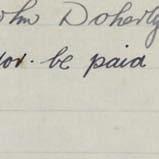 John Doherty
Nov. be paid